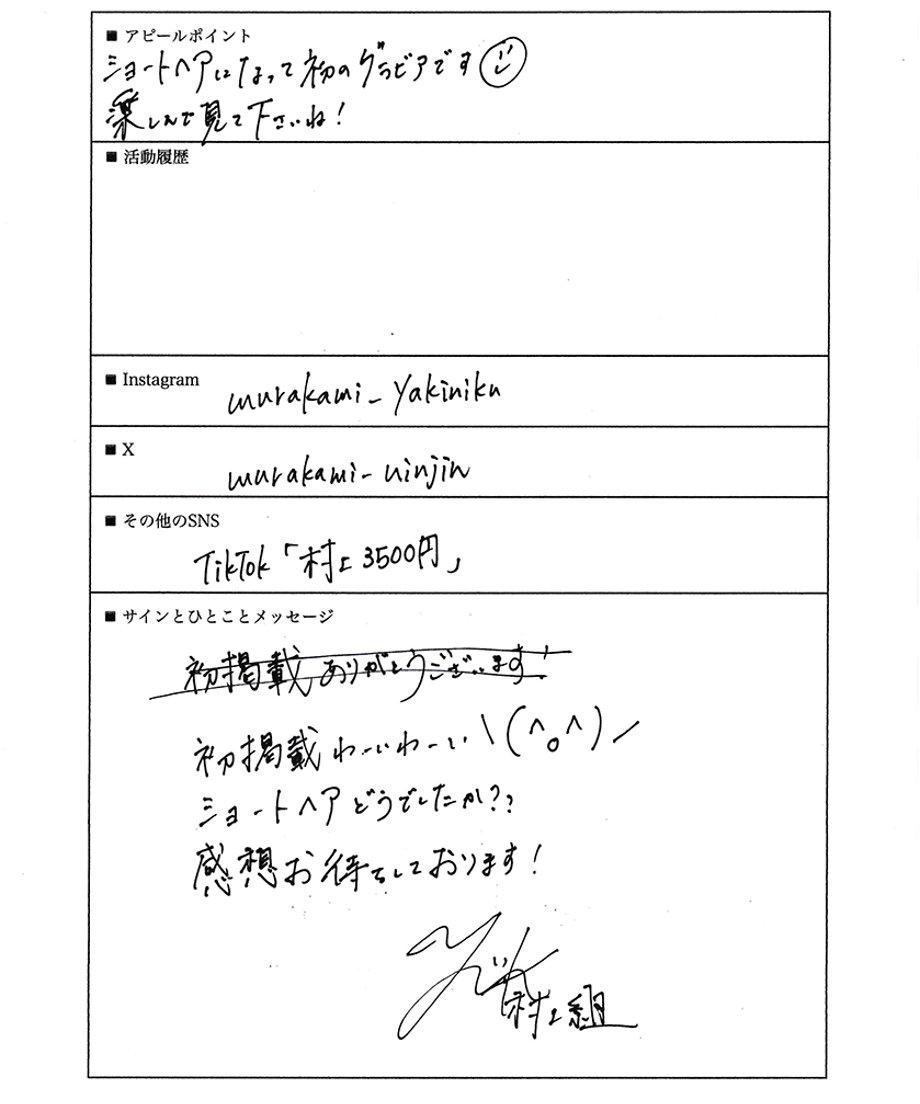 ■ アピールポイント
ショートヘアになって初のグラビアです
楽しんで見て下さいね!
■ 活動履歴
■ Instagram
murakami_yakiniku
■ X
murakami_ninjin
■ その他のSNS
TikTok「村上3500円」
■ サインとひとことメッセージ
初掲載ありがとうございます!
初掲載わーいわーい \(^o^)/
ショートヘアどうでしたか??
感想お待ちしております!
村上組